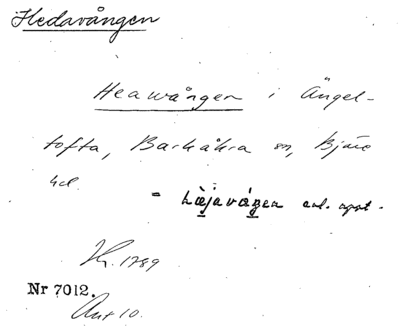 Hedavången
Heawången i Ängel-
tofta, Barkåkra sn, Bjäre
hd.
= Læjavågen enl. uppt.
Hr. 1789
Nr 7012.
Ant 10.